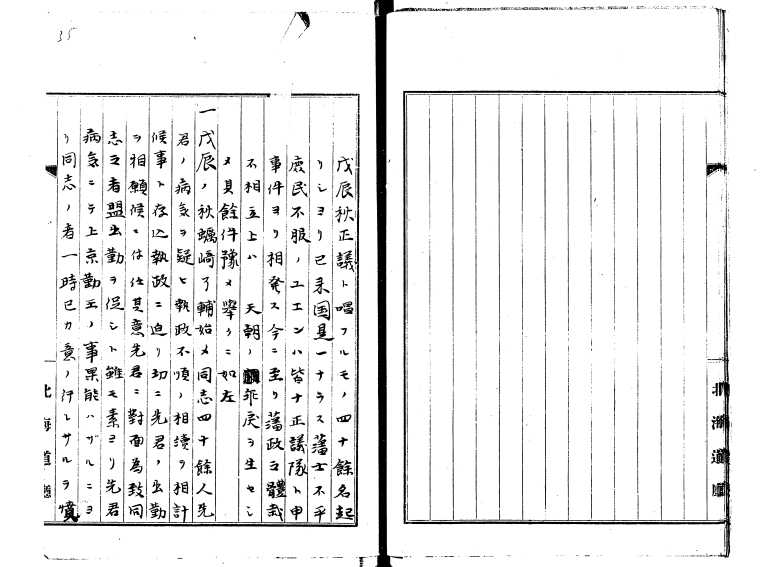 戊辰秋正議ト唱フルモノ四十餘名起
リシヨリ已来国是一ナラス藩士不平
庶民不服ノユエンハ皆ナ正議隊ト申
事件ヨリ相発ス今ニ至リ藩政ヱ體裁
不相立上ハ 天朝ノ 乖戾ヲ生セシ
メ其餘件豫メ擧クニ如左
一戊辰ノ秋蠣崎了輔始メ同志四十餘人先
君ノ病気ヲ疑ヒ執政不順ノ相續ヲ相計
候事ト存込執政ニ迫リ切ニ先君ノ出勤
ヲ相願候ニ付仕其意先君ニ對面為致同
志ヱ者盟出勤ヲ促シト雖モ素ヨリ先君
病気ニテ上京勤王ノ事果能ハザルニヨ
リ同志ノ者一時已カ意ノ行レサルヲ憤
北海道廳
35
北海道廳